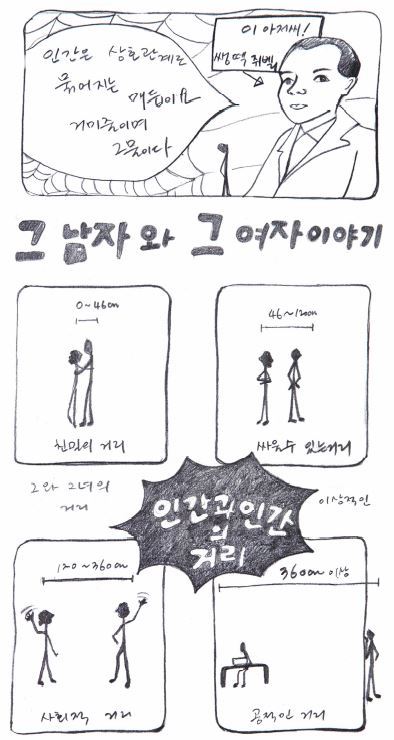 인간은 상호관계로
묶어지는
매듭이요
거미줄이며
그물이다
이 아저씨!
쌩떽쥐벨
그 남자와 그 여자이야기
0~46cm
친밀의 거리
46~120cm
싸울수 있는거리
그와 그녀의
거리
인간과 인간
의
거리
이상적인
120~360cm
사회적 거리
360cm 이상
공적인 거리